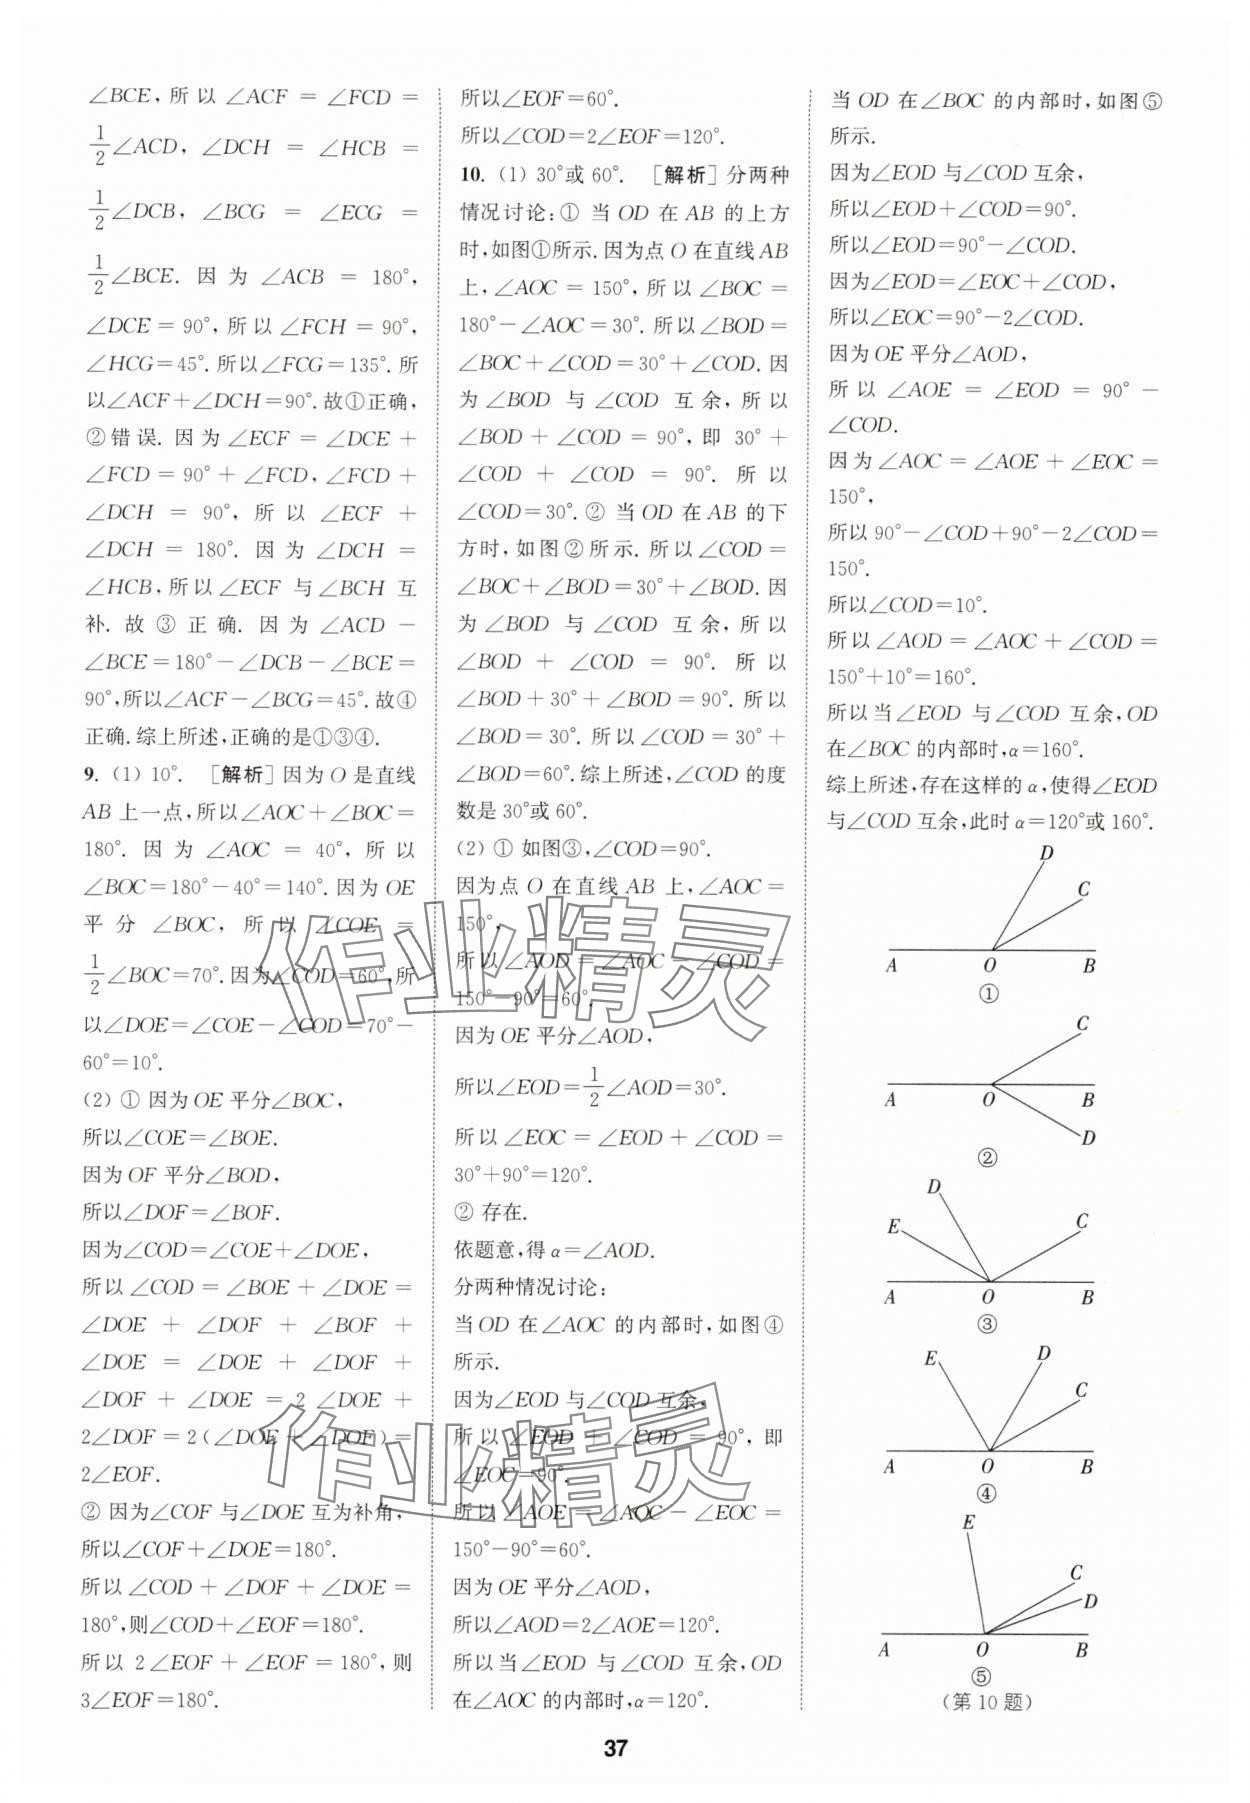 ∠BCE,所以∠ACF=∠FCD=
1/2∠ACD,∠DCH=∠HCB=
1/2∠DCB,∠BCG=∠ECG=
1/2∠BCE.因为∠ACB=180°,
∠DCE=90°,所以∠FCH=90°,
∠HCG=45°.所以∠FCG=135°.所
以∠ACF+∠DCH=90°.故①正确,
②错误.因为∠ECF=∠DCE+
∠FCD=90°+∠FCD,∠FCD+
∠DCH=90°,所以∠ECF+
∠DCH=180°.因为∠DCH=
∠HCB,所以∠ECF与∠BCH互
补.故③正确.因为∠ACD-
∠BCE=180°-∠DCB-∠BCE=
90°,所以∠ACF-∠BCG=45°.故④
正确.综上所述,正确的是①③④.
9.(1)10°.[解析]因为O是直线
AB上一点,所以∠AOC+∠BOC=
180°.因为∠AOC=40°,所以
∠BOC=180°-40°=140°.因为OE
平分∠BOC,所以∠COE=
1/2∠BOC=70°.因为∠COD=60°,所
以∠DOE=∠COE-∠COD=70°-
60°=10°.
(2)①因为OE平分∠BOC,
所以∠COE=∠BOE.
因为OF平分∠BOD,
所以∠DOF=∠BOF.
因为∠COD=∠COE+∠DOE,
所以∠COD=∠BOE+∠DOE=
∠DOE+∠DOF+∠BOF+
∠DOE=∠DOE+∠DOF+
∠DOF+∠DOE=2∠DOE+
2∠DOF=2(∠DOE+∠DOF)=
2∠EOF.
②因为∠COF与∠DOE互为补角,
所以∠COF+∠DOE=180°.
所以∠COD+∠DOF+∠DOE=
180°,则∠COD+∠EOF=180°.
所以2∠EOF+∠EOF=180°,则
3∠EOF=180°.
所以∠EOF=60°.
所以∠COD=2∠EOF=120°.
10.(1)30°或60°.[解析]分两种
情况讨论:①当OD在AB的上方
时,如图①所示.因为点O在直线AB
上,∠AOC=150°,所以∠BOC=
180°-∠AOC=30°.所以∠BOD=
∠BOC+∠COD=30°+∠COD.因
为∠BOD与∠COD互余,所以
∠BOD+∠COD=90°,即30°+
∠COD+∠COD=90°.所以
∠COD=30°.②当OD在AB的下
方时,如图②所示.所以∠COD=
∠BOC+∠BOD=30°+∠BOD.因
为∠BOD与∠COD互余,所以
∠BOD+∠COD=90°.所以
∠BOD+30°+∠BOD=90°.所以
∠BOD=30°.所以∠COD=30°+
∠BOD=60°.综上所述,∠COD的度
数是30°或60°.
(2)①如图③,∠COD=90°.
因为点O在直线AB上,∠AOC=
150°,
所以∠AOD=∠AOC-∠COD=
150°-90°=60°.
因为OE平分∠AOD,
所以∠EOD=1/2∠AOD=30°.
所以∠EOC=∠EOD+∠COD=
30°+90°=120°.
②存在.
依题意,得α=∠AOD.
分两种情况讨论:
当OD在∠AOC的内部时,如图④
所示.
因为∠EOD与∠COD互余,
所以∠EOD+∠COD=90°,即
∠EOC=90°.
所以∠AOE=∠AOC-∠EOC=
150°-90°=60°.
因为OE平分∠AOD,
所以∠AOD=2∠AOE=120°.
所以当∠EOD与∠COD互余,OD
在∠AOC的内部时,α=120°.
当OD在∠BOC的内部时,如图⑤
所示.
因为∠EOD与∠COD互余,
所以∠EOD+∠COD=90°.
所以∠EOD=90°-∠COD.
因为∠EOD=∠EOC+∠COD,
所以∠EOC=90°-2∠COD.
因为OE平分∠AOD,
所以∠AOE=∠EOD=90°-
∠COD.
因为∠AOC=∠AOE+∠EOC=
150°,
所以90°-∠COD+90°-2∠COD=
150°.
所以∠COD=10°.
所以∠AOD=∠AOC+∠COD=
150°+10°=160°.
所以当∠EOD与∠COD互余,OD
在∠BOC的内部时,α=160°.
综上所述,存在这样的α,使得∠EOD
与∠COD互余,此时α=120°或160°.
D
C
A O B
①
C
A O B
D
②
D
E C
A O B
③
E D
C
A O B
④
E
C
D
A O B
⑤
(第10题)
作业精灵
作业精灵
37